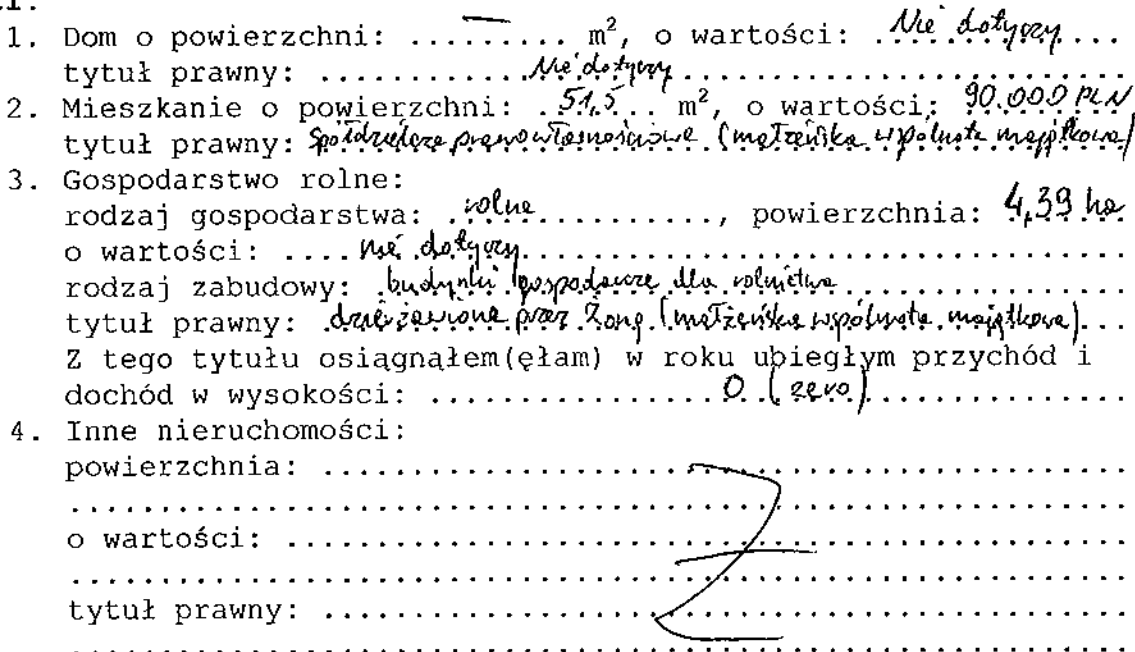 II.
1. Dom o powierzchni: .—. m², o wartości: Nie dotyczy...
tytuł prawny: ............Nie dotyczy........................
2. Mieszkanie o powierzchni: .51,5... m², o wartości: 90.000 PLN
tytuł prawny: Spółdzielcze prawo własnościowe (małżeńska wspólnota majątkowa)
3. Gospodarstwo rolne:
rodzaj gospodarstwa: .rolne..........., powierzchnia: 4,39 ha
o wartości: ....nie dotyczy..................................
rodzaj zabudowy: .budynki gospodarcze dla rolnictwa................
tytuł prawny: .dzierżawione przez żonę (małżeńska wspólnota majątkowa)...
Z tego tytułu osiągnąłem(ęłam) w roku ubiegłym przychód i
dochód w wysokości: ................0 (zero)................
4. Inne nieruchomości:
powierzchnia: ...............................................
.............................................................
o wartości: .................................................
.............................................................
tytuł prawny: ...............................................
.............................................................